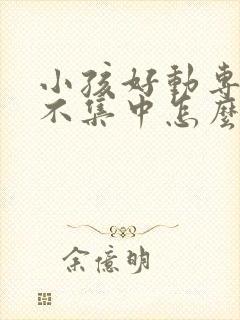 小孩好動專
不集中怎麼
余億明